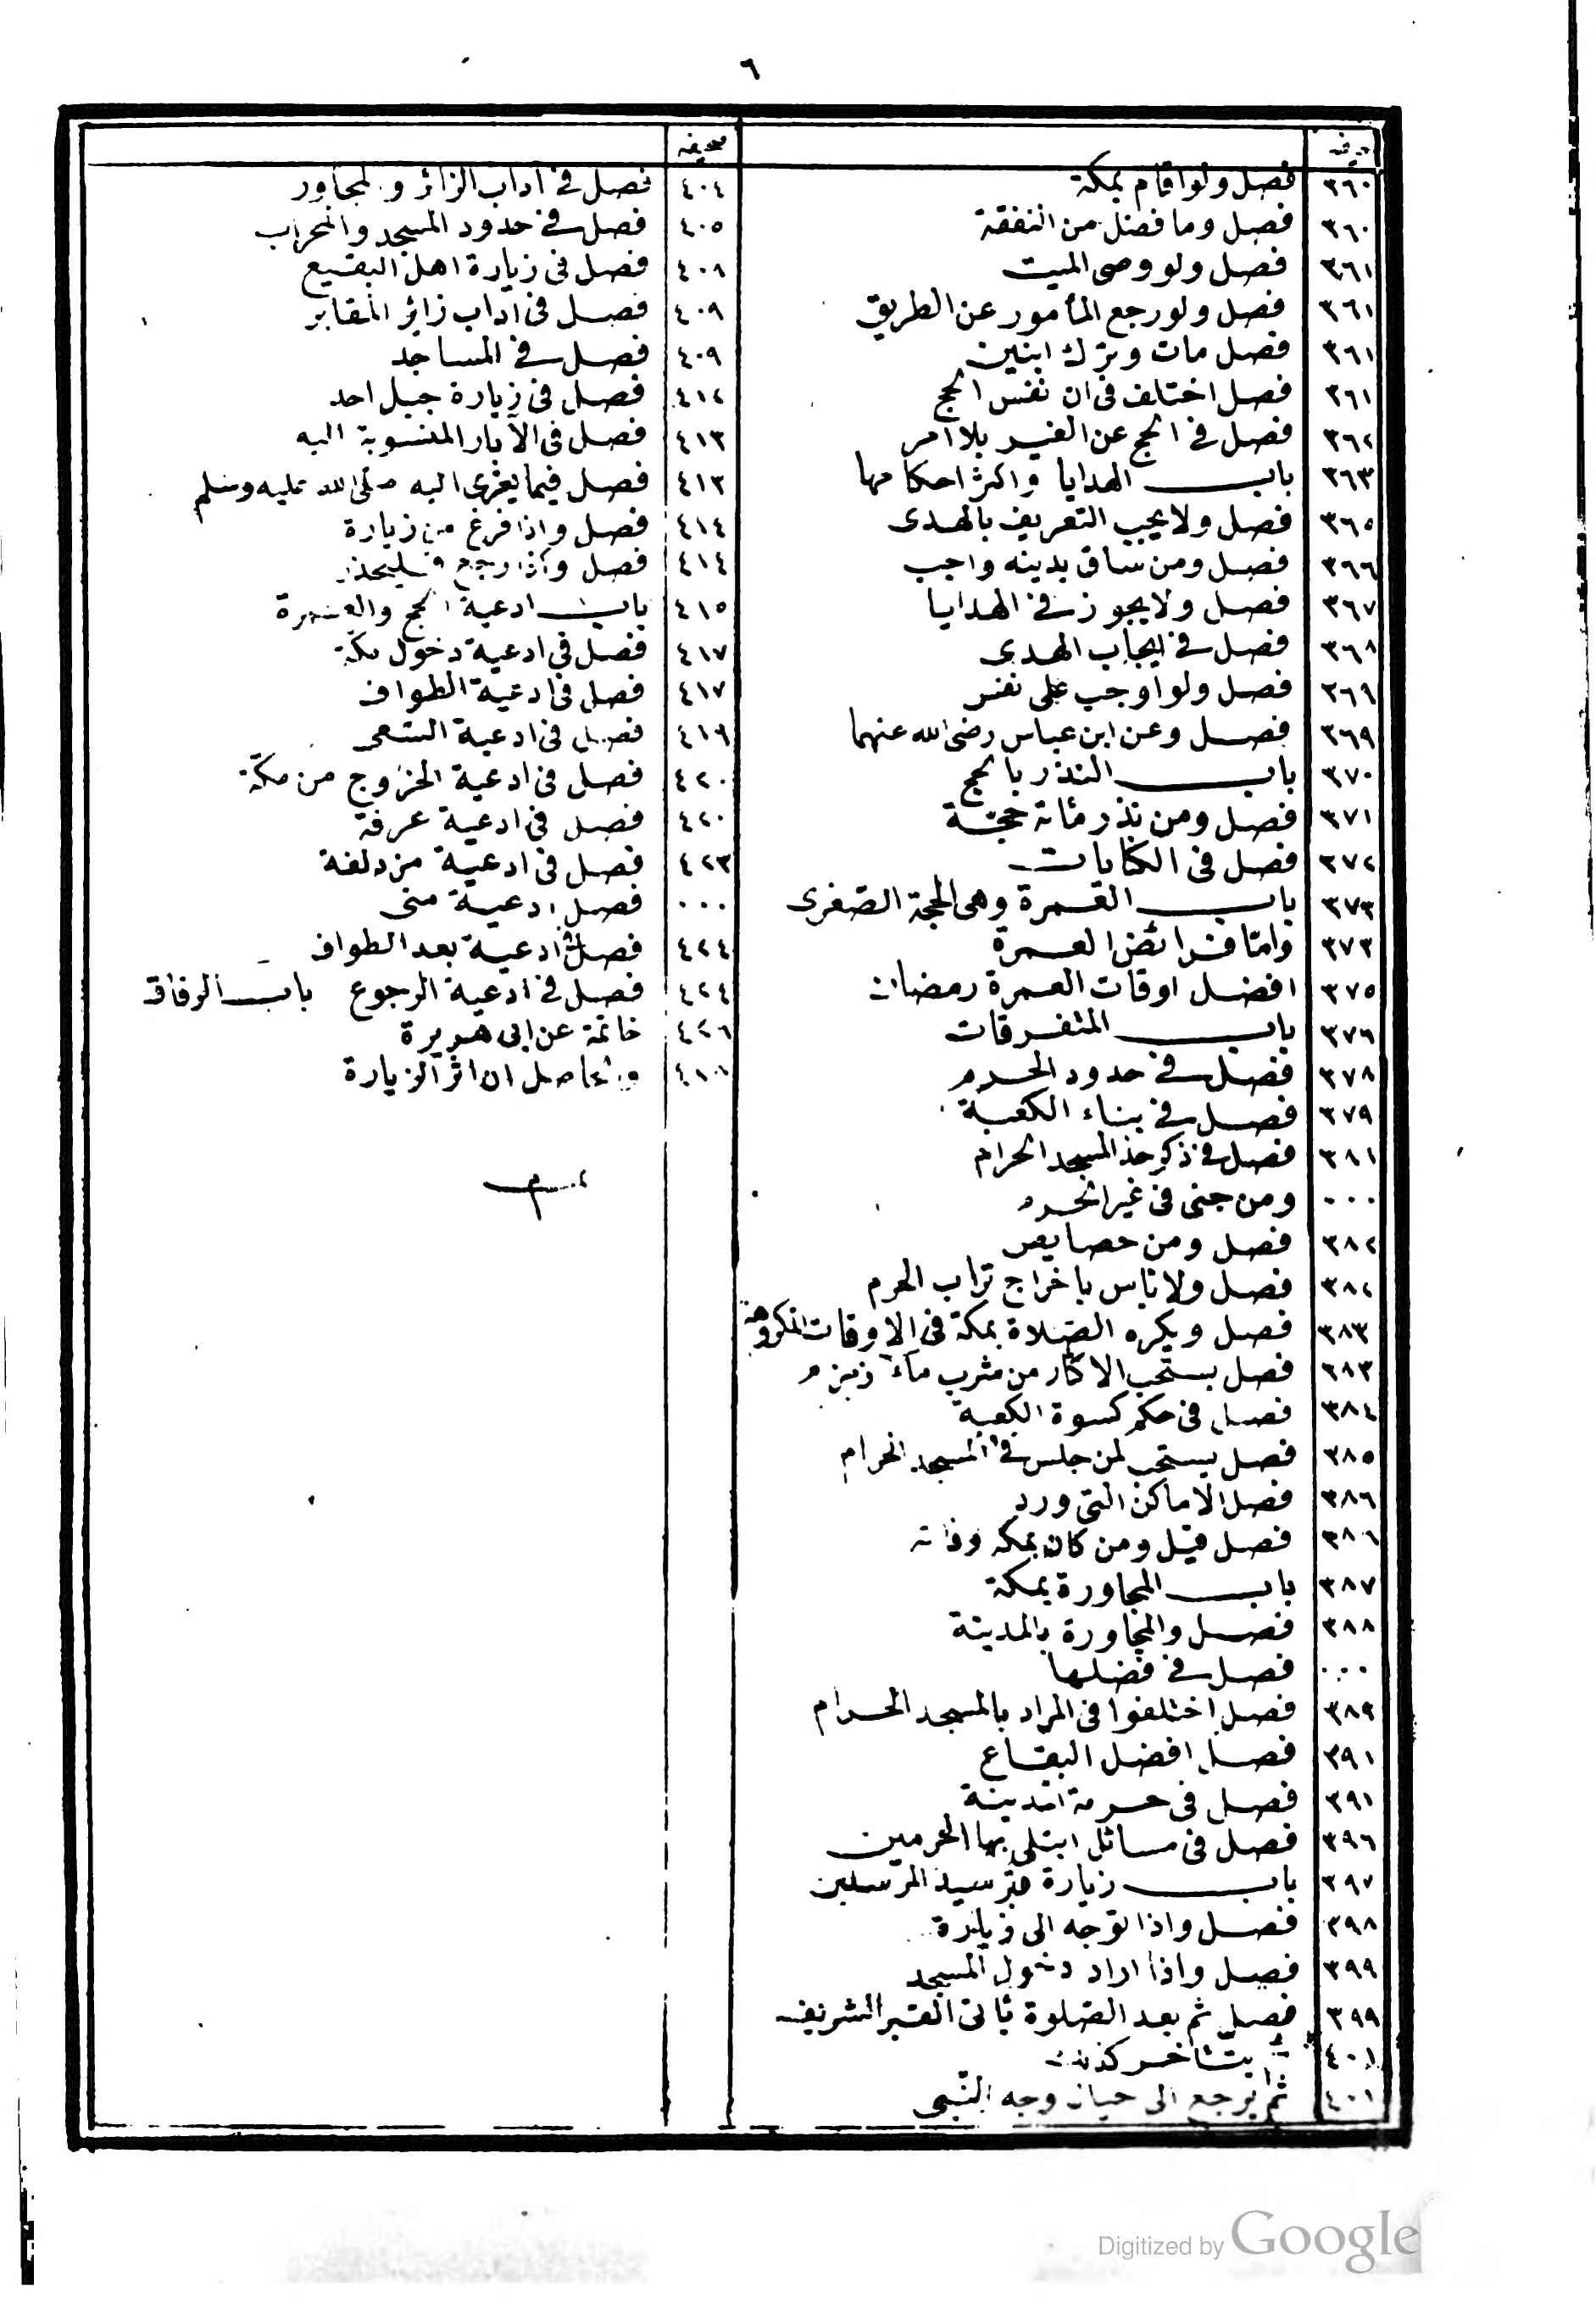 ٦
صحيفه
٣٦٠ فصل ولو اقام بمكة
٣٦٠ فصل وما فضل من النفقة
٣٦١ فصل ولو وصى الميت
٣٦١ فصل ولو رجع المأمور عن الطريق
٣٦١ فصل مات وترك ابنين
٣٦١ فصل اختلف فى ان نفس الحج
٣٦٢ فصل فى الحج عن الغير بلا امر
٣٦٣ باب الهدايا واكثر احكامها
٣٦٥ فصل ولا يجب التعريف بالهدى
٣٦٦ فصل ومن ساق بدينه واجب
٣٦٧ فصل ولا يجوز فى الهدايا
٣٦٨ فصل فى ايجاب الهدى
٣٦٩ فصل ولو اوجب على نفس
٣٦٩ فصل وعن ابن عباس رضى الله عنهما
٣٧٠ باب النذر بالحج
٣٧١ فصل ومن نذر مائة حجّة
٣٧٢ فصل فى الكنايات
٣٧٣ باب العمرة وهى الحجة الصّغرى
٣٧٣ وامّا فرائض العمرة
٣٧٥ افضل اوقات العمرة رمضان
٣٧٦ باب المتفرقات
٣٧٨ فصل فى حدود الحرم
٣٧٩ فصل فى بناء الكعبة
٣٨١ فصل فى ذكر حد المسجد الحرام
٠٠٠ ومن جنى فى غير الحرم
٣٨٢ فصل ومن خصايص
٣٨٢ فصل ولا بأس باخراج تراب الحرم
٣٨٣ فصل ويكره الصّلاة بمكة فى الاوقات المكروهة
٣٨٣ فصل يستحب الاكثار من شرب ماء زمزم
٣٨٤ فصل فى حكم كسوة الكعبة
٣٨٥ فصل يستحب لمن جلس فى المسجد الحرام
٣٨٦ فصل الاماكن التى ورد
٣٨٦ فصل قيل ومن كان بمكه وفاته
٣٨٧ باب المجاورة بمكة
٣٨٨ فصل والمجاورة بالمدينة
٠٠٠ فصل فى فضلها
٣٨٩ فصل اختلفوا فى المراد بالمسجد الحرام
٣٩١ فصل افضل البقاع
٣٩١ فصل فى حرمة المدينة
٣٩٦ فصل فى مسائل ابتلى بها الحرمين
٣٩٧ باب زيارة قبر سيد المرسلين
٣٩٨ فصل واذا توجه الى زيارة
٣٩٩ فصل واذا اراد دخول المسجد
٣٩٩ فصل ثم بعد الصّلوة يأتى القبر الشريف
٤٠١ ثم يتأخر كذلك
٤٠١ ثم يرجع الى حيان وجه النّبى
صحيفه
٤٠٤ فصل فى اداب الزائر والمجاور
٤٠٥ فصل فى حدود المسجد والمحراب
٤٠٨ فصل فى زيارة اهل البقيع
٤٠٩ فصل فى اداب زائر المقابر
٤٠٩ فصل فى المساجد
٤١٢ فصل فى زيارة جبل احد
٤١٣ فصل فى الآبار المنسوبة اليه
٤١٣ فصل فيما يعزى اليه صلى الله عليه وسلم
٤١٤ فصل واذا فرغ من زيارة
٤١٤ فصل واذا رجع
٤١٥ باب ادعية الحج والعمرة
٤١٧ فصل فى ادعية دخول مكّة
٤١٧ فصل فى ادعية الطواف
٤١٩ فصل فى ادعية السعى
٤٢٠ فصل فى ادعية الخروج من مكّة
٤٢٠ فصل فى ادعية عرفة
٤٢٣ فصل فى ادعية مزدلفة
٠٠٠ فصل ادعية منى
٤٢٤ فصل ادعية بعد الطواف
٤٢٤ فصل فى ادعية الرجوع باب الرفاق
٤٢٦ خاتمة عن ابى هريرة
والحاصل ان اثر الزيارة
Digitized by Google